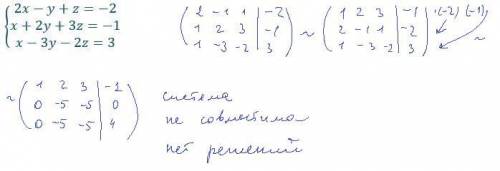 2x − y + z = −2
x + 2y + 3z = −1
x − 3y − 2z = 3
( 2 -1 1 | -2 )
( 1 2 3 | -1 ) ~
( 1 -3 -2 | 3 )
( 1 2 3 | -1 ) ·(-2) (-1)
( 2 -1 1 | -2 )
( 1 -3 -2 | 3 ) ~
~ ( 1 2 3 | -1 )
( 0 -5 -5 | 0 )
( 0 -5 -5 | 4 )
система
не совместима
нет решений